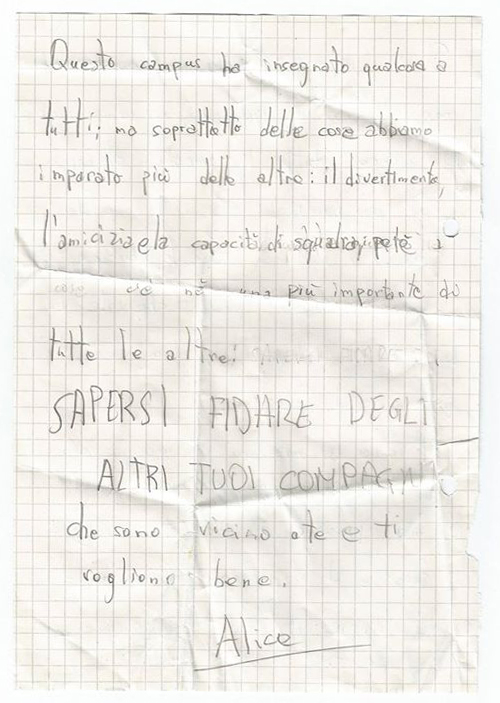 Questo campus ha insegnato qualcosa a
tutti; ma soprattetto delle cose abbiamo
imparato più delle altre: il divertimento,
l'amicizia e la capacità di
più importante di
tutte le altre:
SAPERSI FIDARE DEGLI
ALTRI TUOI COMPAGNI
che sono vicino ate e ti
vogliono bene.
Alice